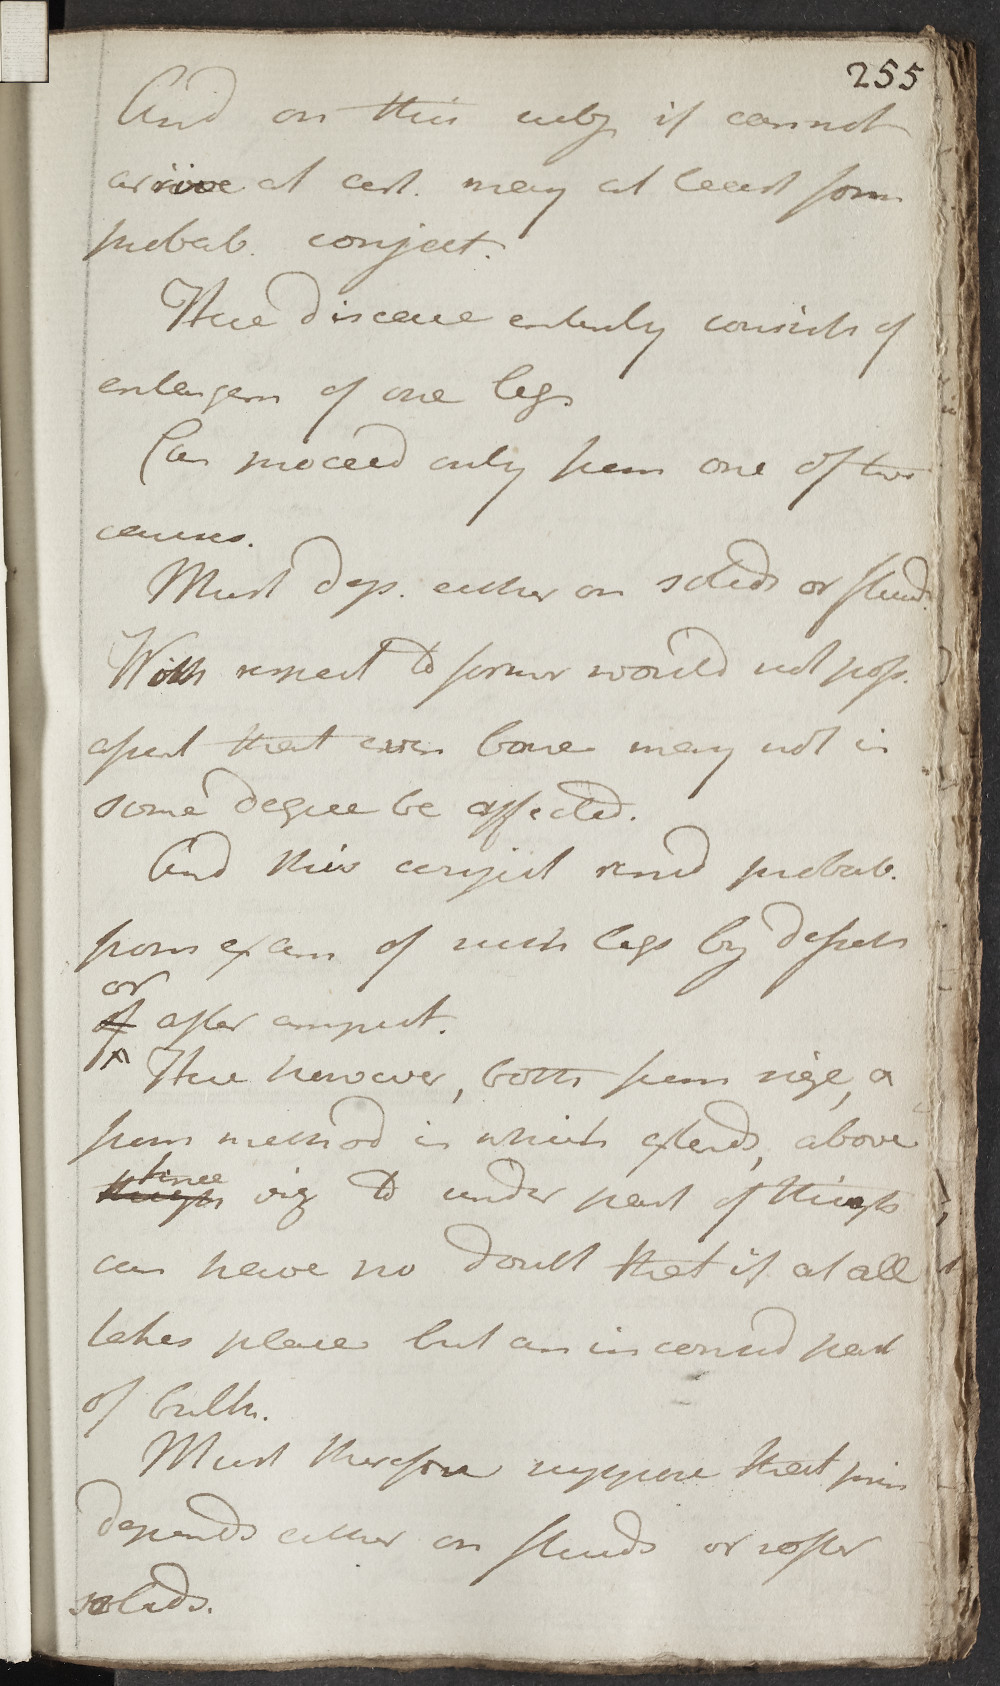 255
And on this subj if cannot
arrive at cert. may at least form
probab. conject.
Here disease entirely consists of
enlargem of one leg.
Can proceed only from one of two
causes.
Must dep. either on solids or fluids.
With respect to former would not poss.
assert that even bone may not in
some degree be affected.
And this conject rend probab.
from exam of such legs by dissect
or
of after amput.
Here however, both from size, &
from method in which extends, above
knee
thigh viz to under part of thigh
can have no doubt that if at all
takes place but an inconsid part
of bulk.
Must therefore suppose that prin
depends either on fluids or softer
solids.